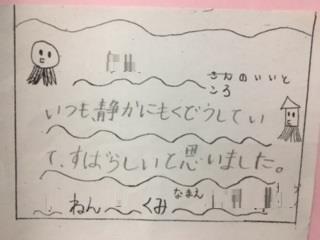 さんのいいと
ころ
いつも静かにもくどうしてい
て、すばらしいと思いました。
なまえ
ねん くみ